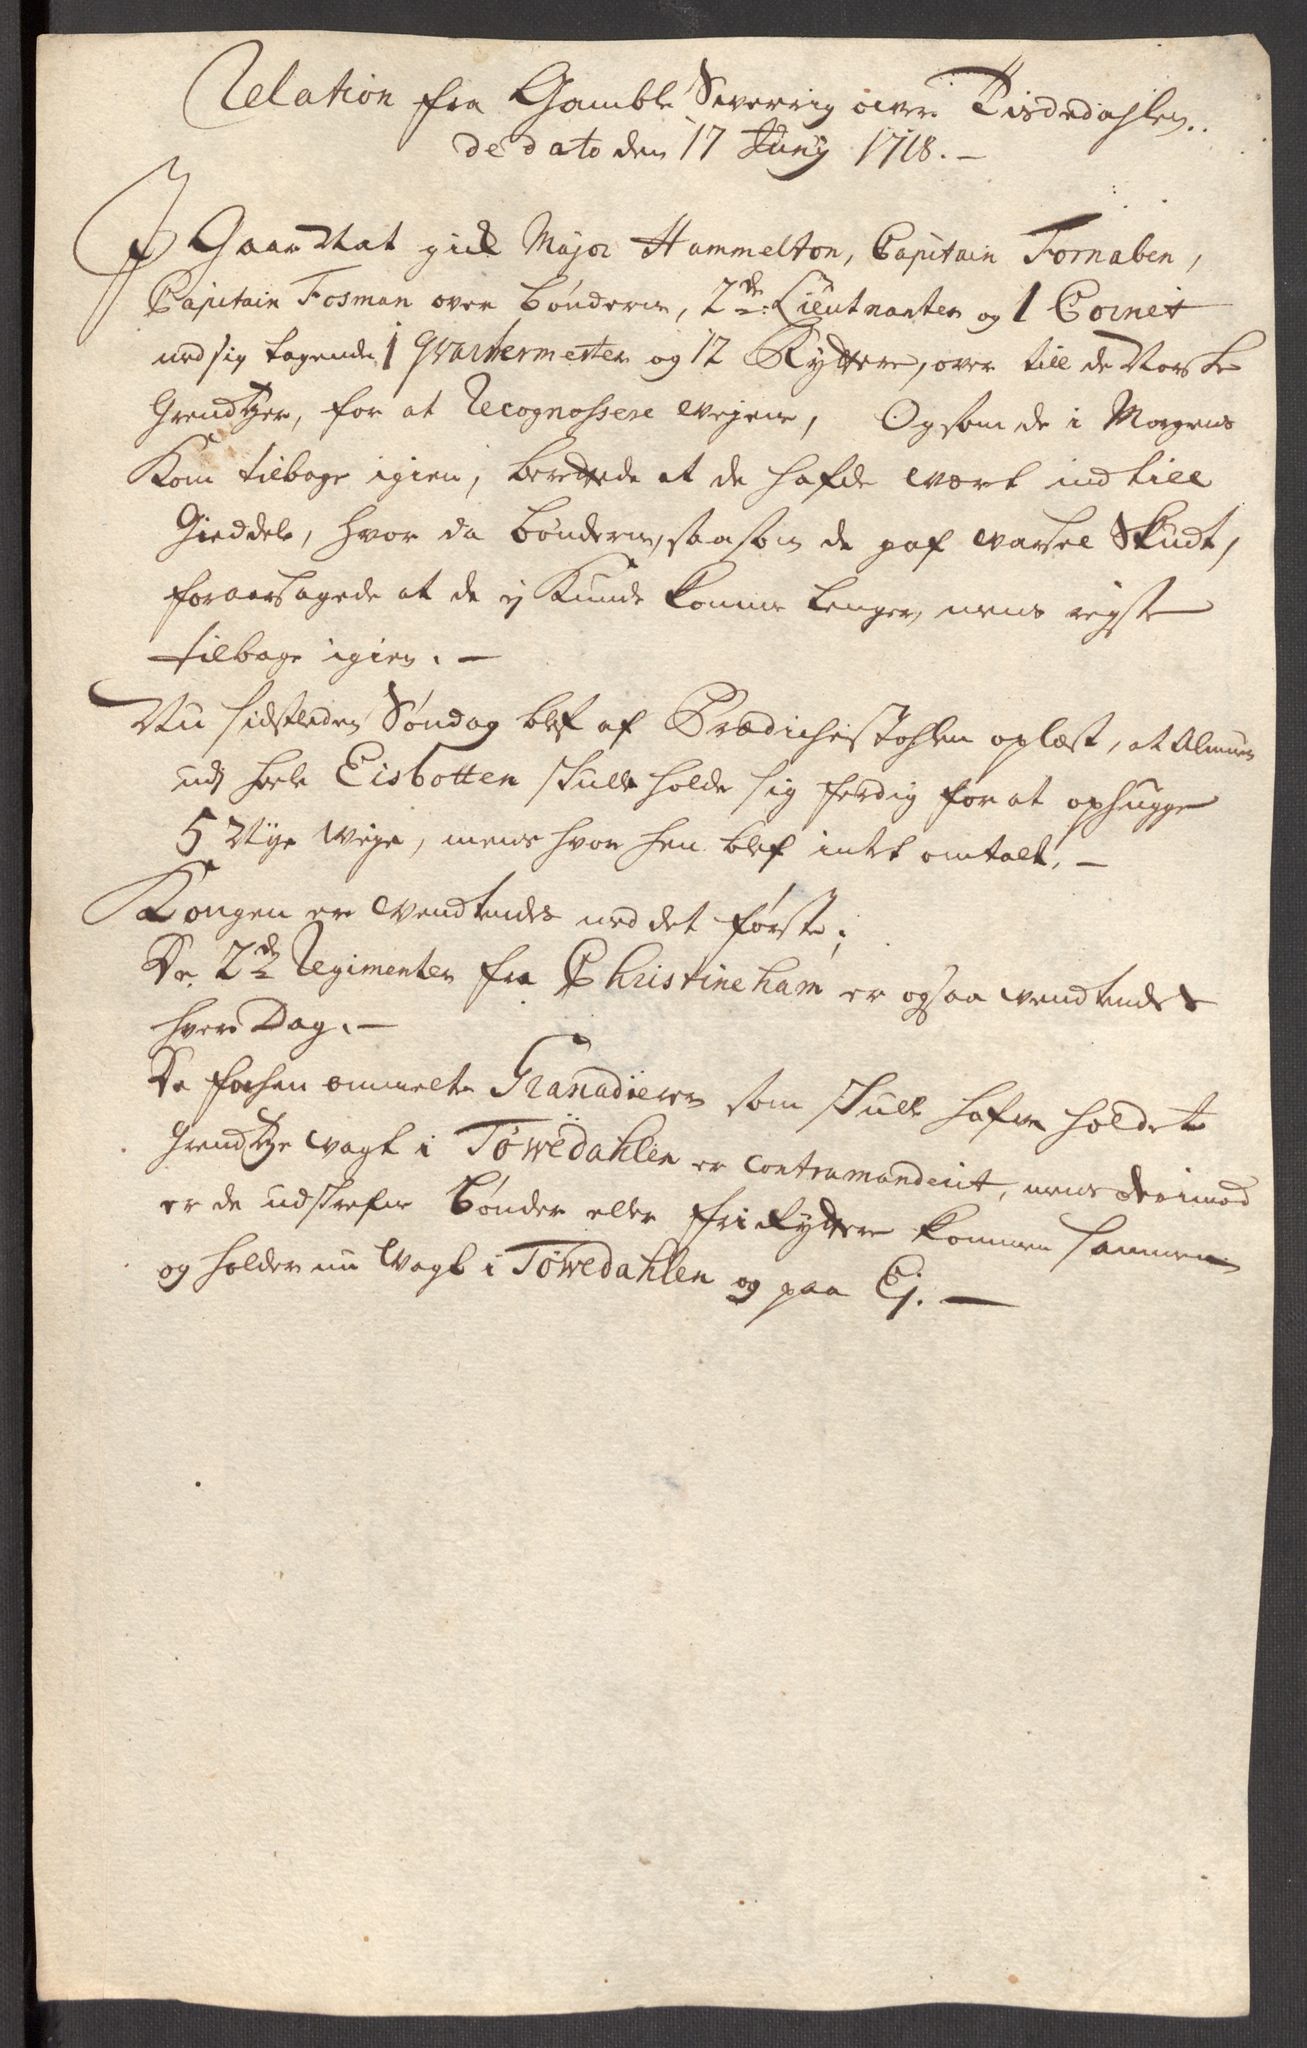 Relation fra Gamble Sverrig over Tisdedahlen..
de dato den 17 Junÿ 1718. –
I Gaar Nat gick Major Hammelton, Capitain Tornaben,
Capitain Fosman over bønderne, 2de Lieutnanter og 1 Cornet
med sig tagende 1 Qvartermester og 12 Ryttere, over till de Norske
Grendtzer, for at Recognossere vejene, Og som de i Morgens
kom tilbage igien, berettede at de hafde vært ind till
Gieddele, hvor da bønderne, saa som de gaf varsel Skudt,
foraarsagede at de ej kunde komme lenger, mens rejste
tilbage igien. –
Nu sidstleden Søndag blef af Prædichestohlen oplæst, at Almuen
udj heele Eisbotten skulle holde sig ferdig for at ophugge
5 Nÿe veje, mens hvor hen blef intet omtalt. –
Kongen er vendtendes med det første;
De 2de Regimenter fra Christineham er ogsaa vendtendes
hver Dag. –
De forhen ommelte Granadierer som skulle hafve holdet
Grendtze vagt i Tøwedahlen er contramanderit, mens derimod
er de udskrefne bønder eller friRyttere kommen sammen
og holder nu Vagt i Tøwedahlen og paa Ej. –